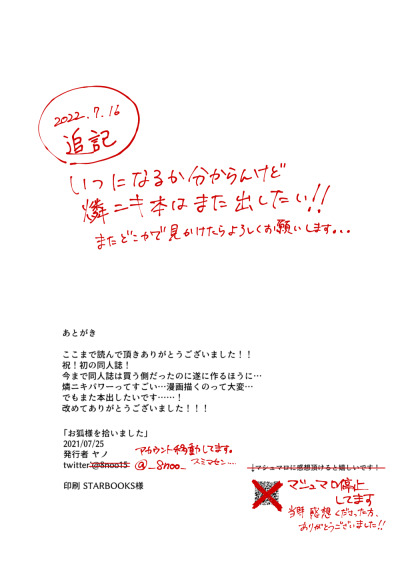 2022.7.16
追記
いつになるか分からんけど
燐ニキ本はまた出したい!!
またどこかで見かけたらよろしくお願いします...
あとがき
ここまで読んで頂きありがとうございました！！
祝！初の同人誌！
今まで同人誌は買う側だったのに遂に作るほうに…
燐ニキパワーってすごい…漫画描くのって大変…
でもまた本出したいです……！
改めてありがとうございました！！！
「お狐様を拾いました」
2021/07/25
発行者 ヤノ
アカウント移動してます。
twitter @8noo15 @_8noo_ スミマセン...
印刷 STARBOOKS様
↓マシュマロに感想頂けると嬉しいです！
マシュマロ停止
してます
感想くださった方、
ありがとうございました!!